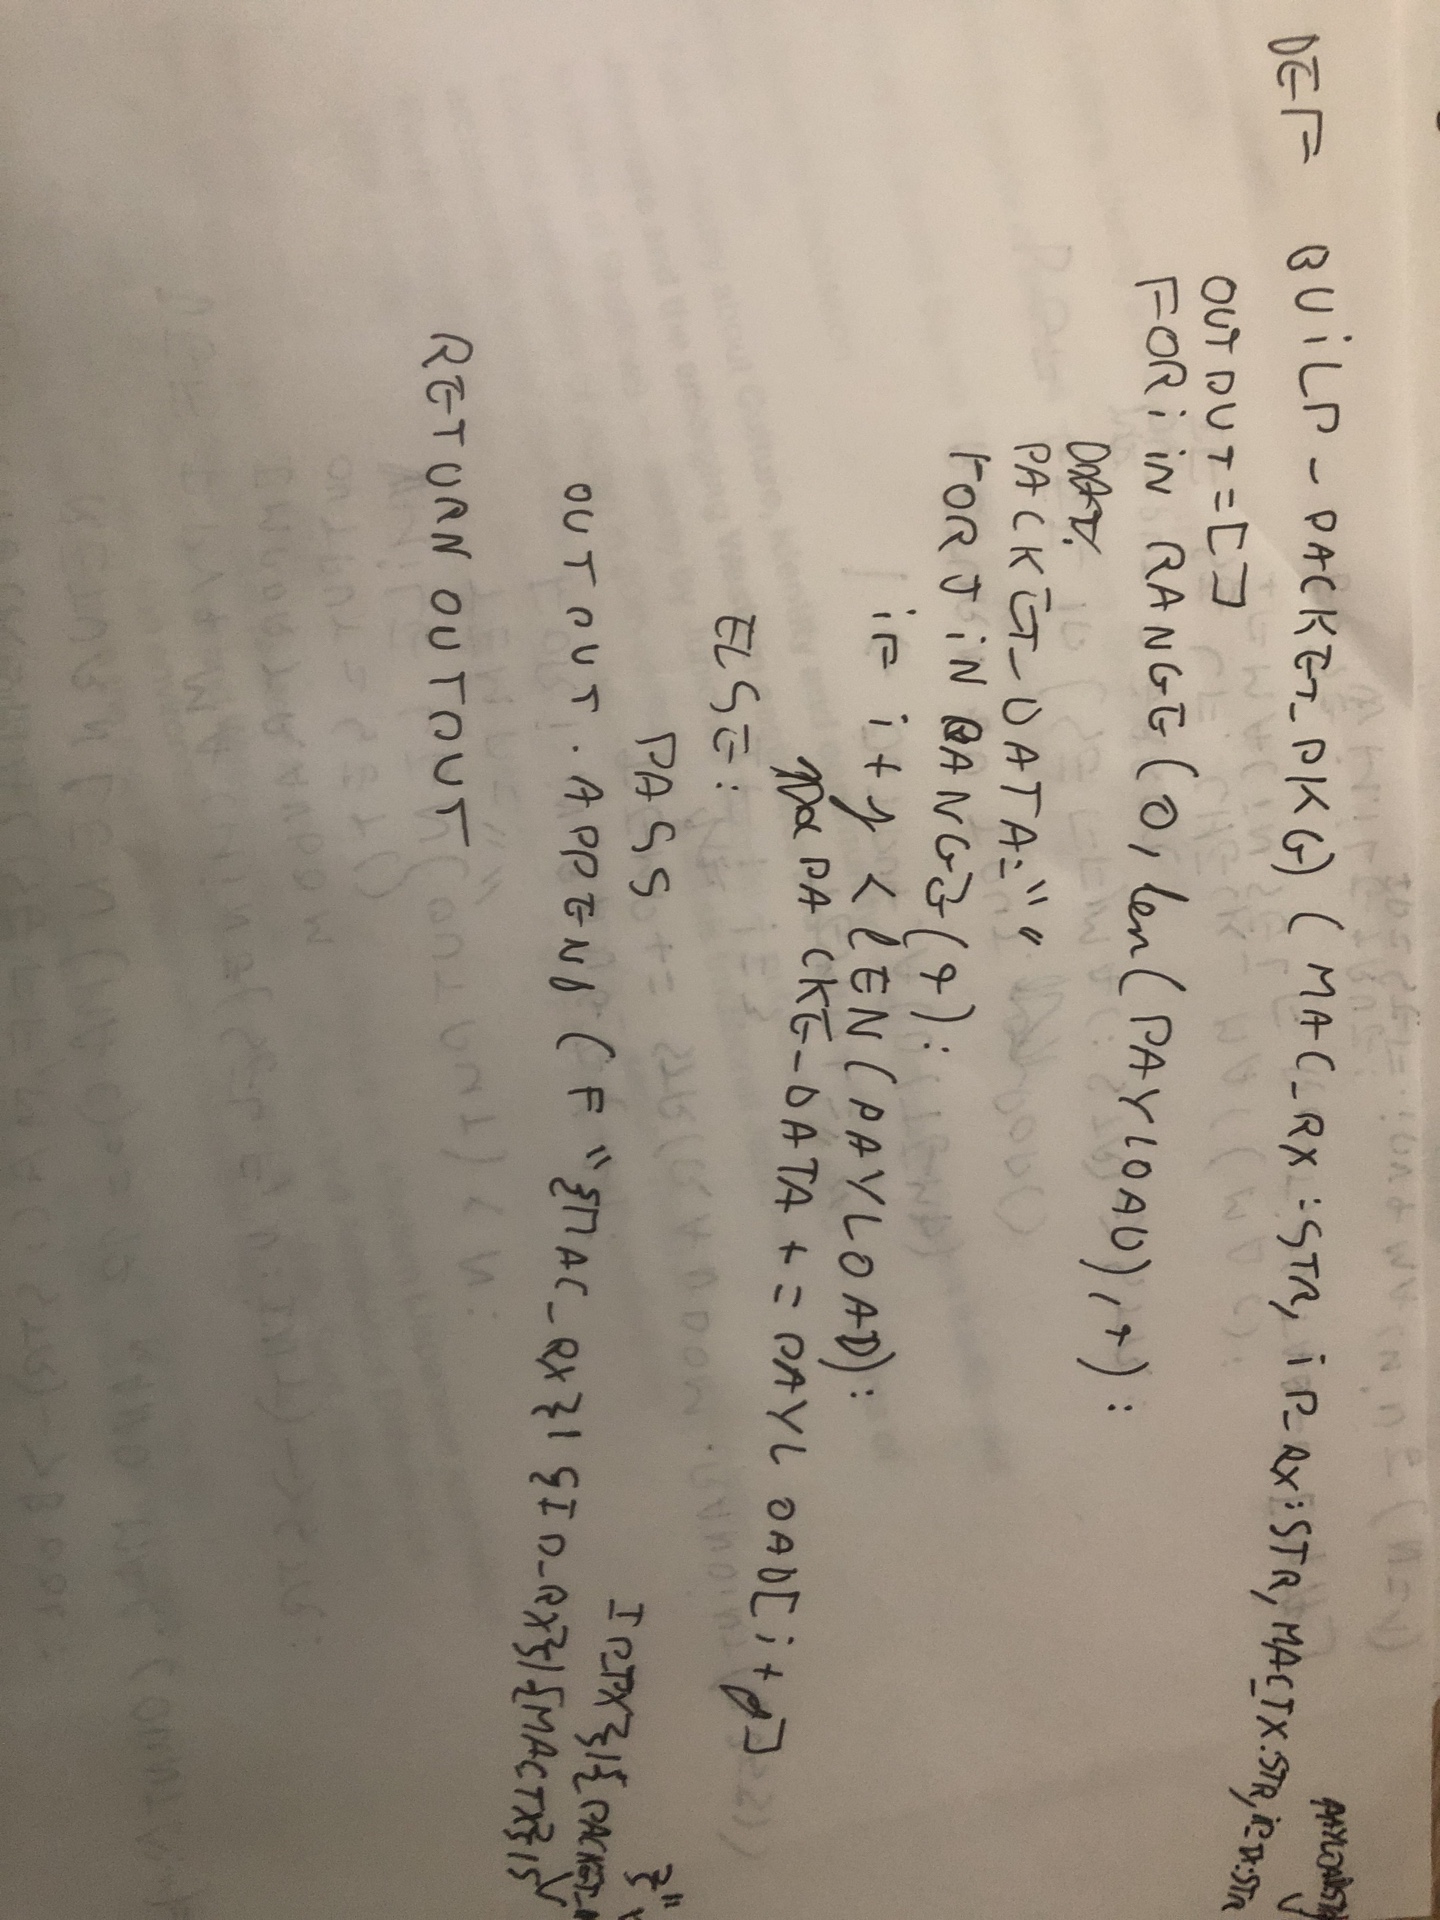 DEF BUILD_PACKET_PKG) (MAC_RX:STR, iP_RX:STR, MAC_TX:STR, iP_TX:STR
OUTPUT=[]
FOR i iN RANGE(0, len(PAYLOAD),4):
PACKET_DATA=""
FOR J iN RANGE(4):
iF i+J < LEN(PAYLOAD):
PACKET_DATA += PAYLOAD[i+J]
ELSE:
PASS
OUTPUT.APPEND(F"{MAC_RX}|{IP_RX}|{MACTX}|{
IP_TX}|{PACKET_
}"
RETURN OUTPUT